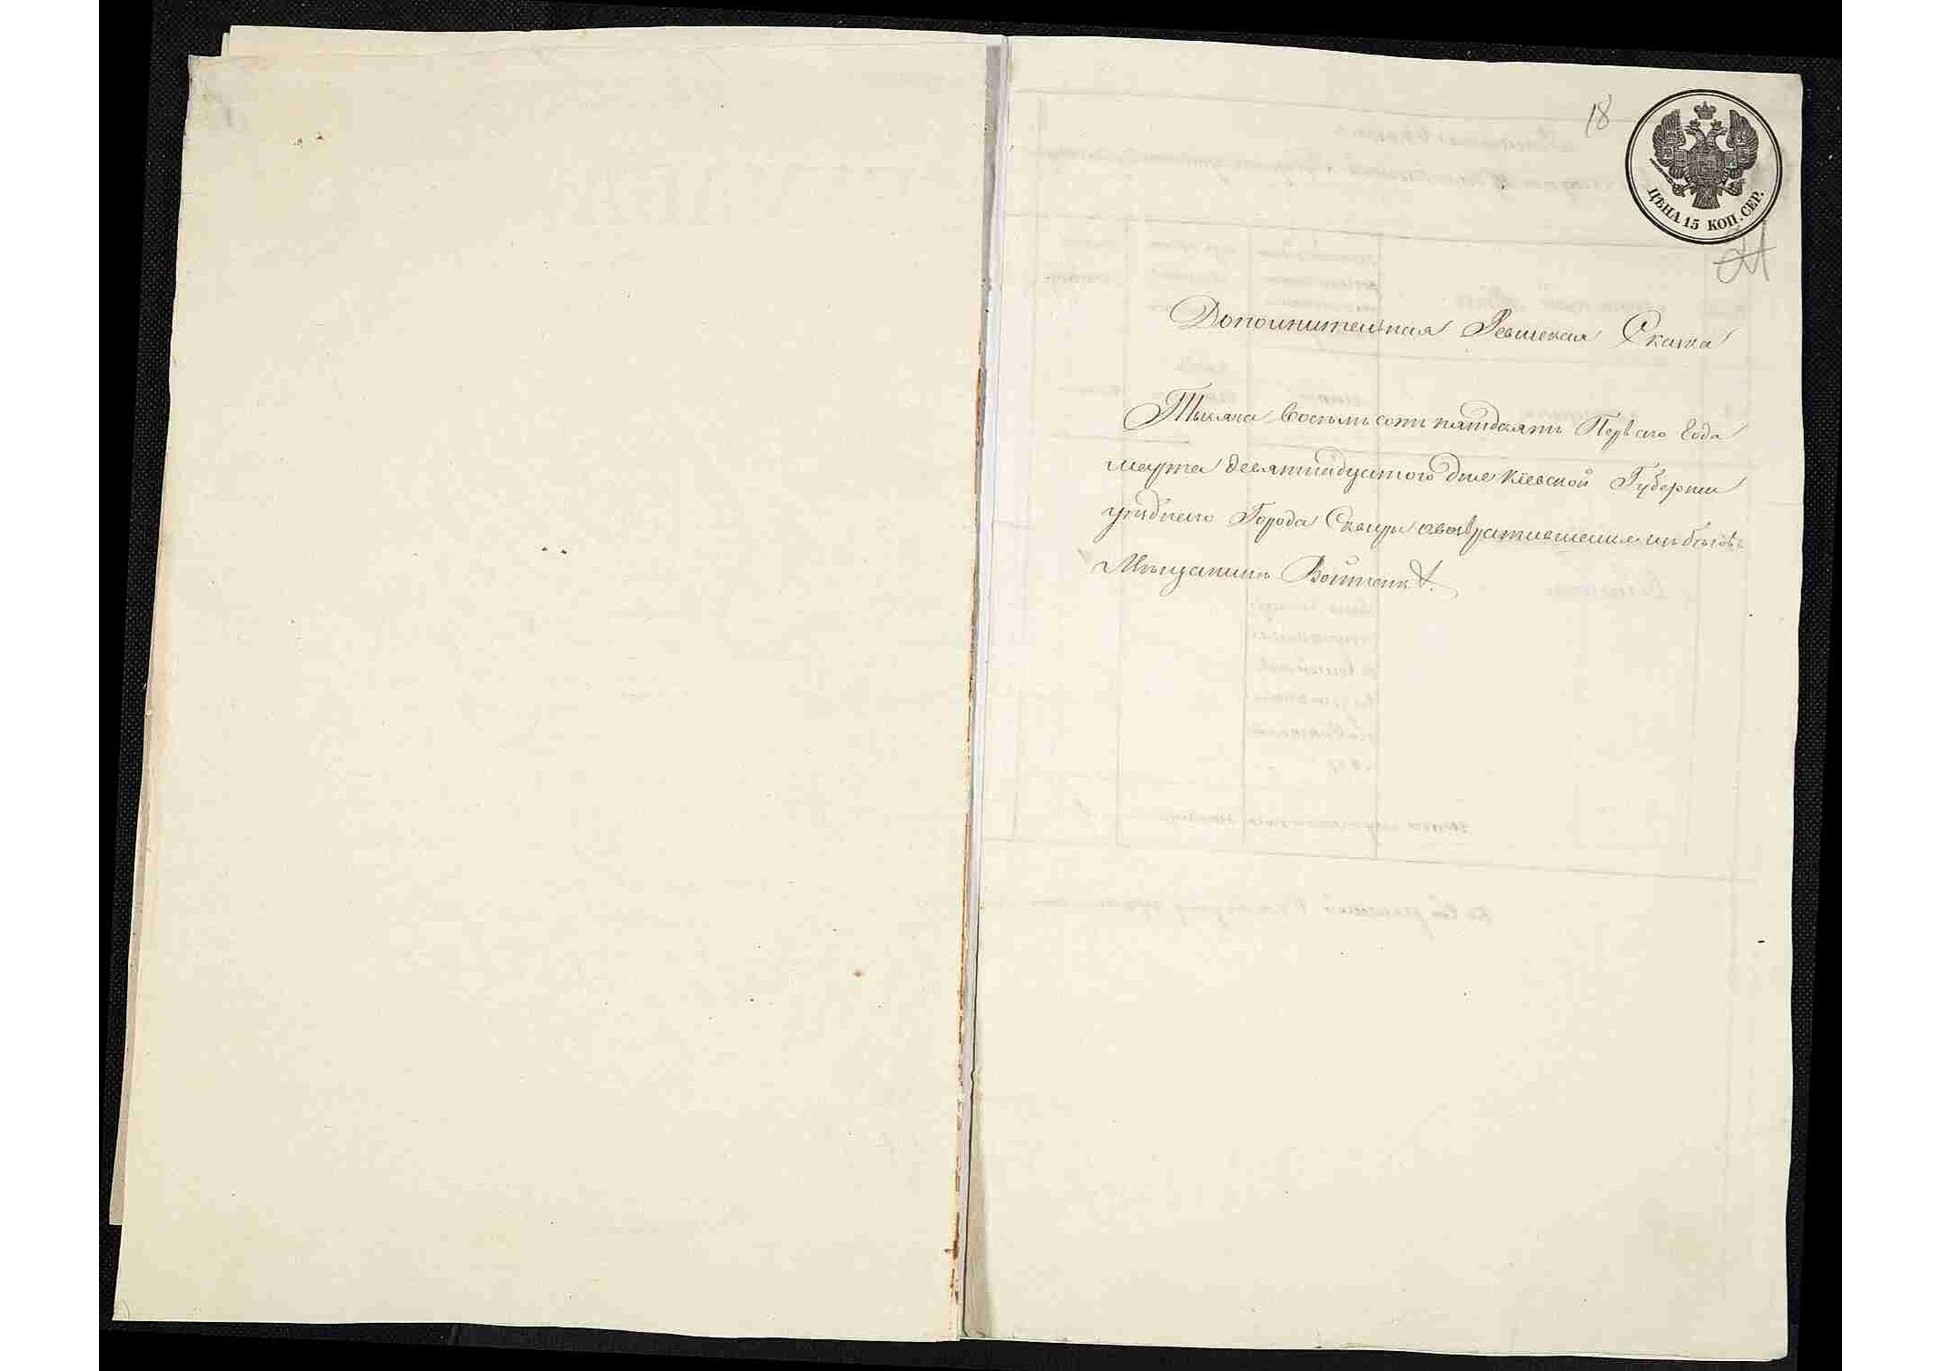 18
ЦѢНА 15 КОП. СЕР.
Дополнительная Ревизская Сказка
Тысяча восемь сотъ пятдесятъ Перваго года
марта девятнадцатого дня Кіевской Губерніи
уѣзднаго Города Сквиры о возвратившемся изъ бѣговъ
Мѣщанинѣ